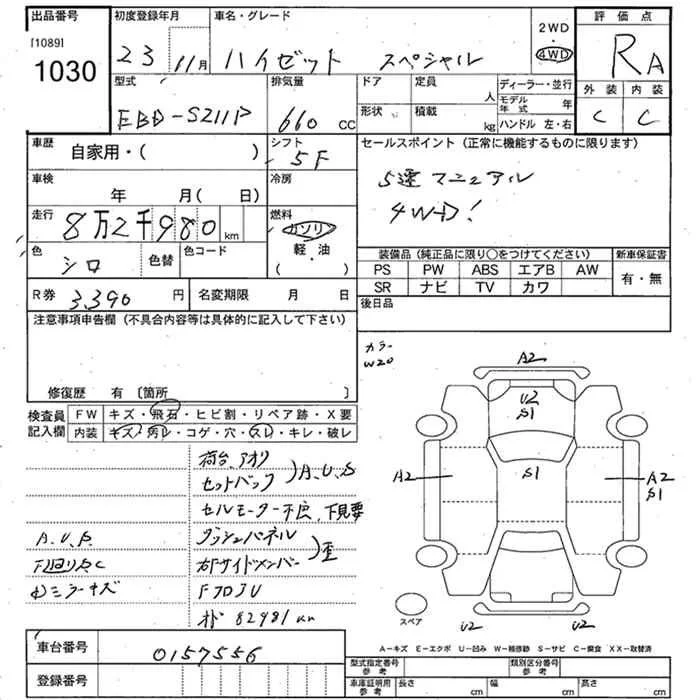 出品番号 初度登録年月 車名・グレード 2WD 評価点
[1089]
1030 23 11月 ハイゼット スペシャル 4WD RA
型式 排気量 ドア 定員 人 ディーラー・並行 外装 内装
EBD-S211P 660 cc 形状 積載 kg モデル年式 年 C C
ハンドル 左・右
車歴 自家用・( ) シフト 5F セールスポイント(正常に機能するものに限ります)
車検 年 月(日) 冷房 5速マニュアル
走行 8万2千980km 燃料 ガソリン 軽・油 4WD!
色 シロ 色替 色コード
装備品(純正品に限り〇をつけてください) 新車保証書
PS PW ABS エアB AW 有・無
SR ナビ TV カワ
R券 3,390円 名変期限 月 日 後日品
注意事項申告欄(不具合内容等は具体的に記入して下さい)
カラー
W20
修復歴 有〔箇所 〕
検査員記入欄 FW キズ・飛石・ヒビ割・リペア跡・X要
内装 キズ・汚レ・コゲ・穴・スレ・キレ・破レ
荷台、アオリ
セットバック )A.U.S
セルモーター不良、下見要
A.U.S
下回りS,C
クラッシュパネル
右Fサイドメンバー )歪
ミラーキズ
82981km
A2
U2
S1
S1
A2
A2
S1
スペア
U2
U2
車台番号 0157556
A-キズ E-エクボ U-凹み W-補修跡 S-サビ C-腐食 XX-取替済
登録番号
型式指定番号 参考 類別区分番号 参考
車庫証明用 参考 長さ cm 幅 cm 高さ cm